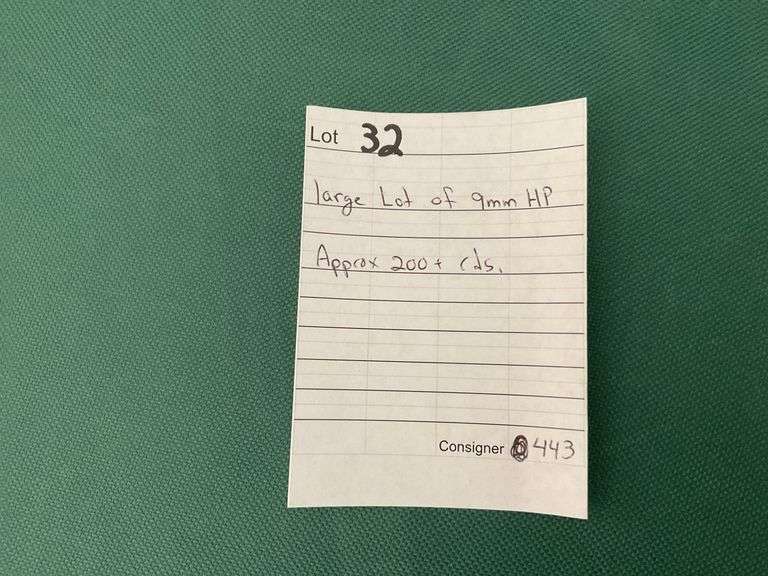 Lot 32
large Lot of 9mm HP
Approx 200+ rds.
Consigner 443